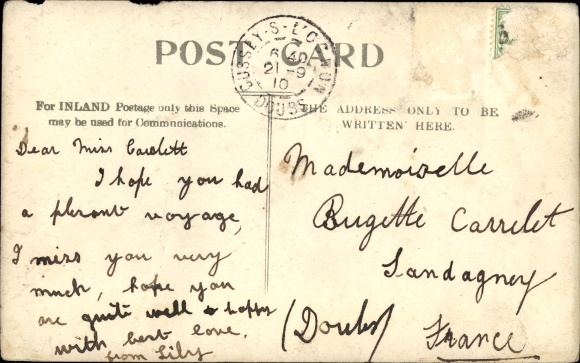 POST CARD
CUSSEY-S-L'OGNON
6 40
21 -9
10
DOUBS
For INLAND Postage only this Space
may be used for Communications.
THE ADDRESS ONLY TO BE
WRITTEN HERE.
Dear Miss Carrlett
I hope you had
a plesant voyage,
I miss you very
much, hope you
are quite well & happy
with best love.
from Lily
Mademoiselle
Bugette Carrelet
Landagney
(Doubs)
France